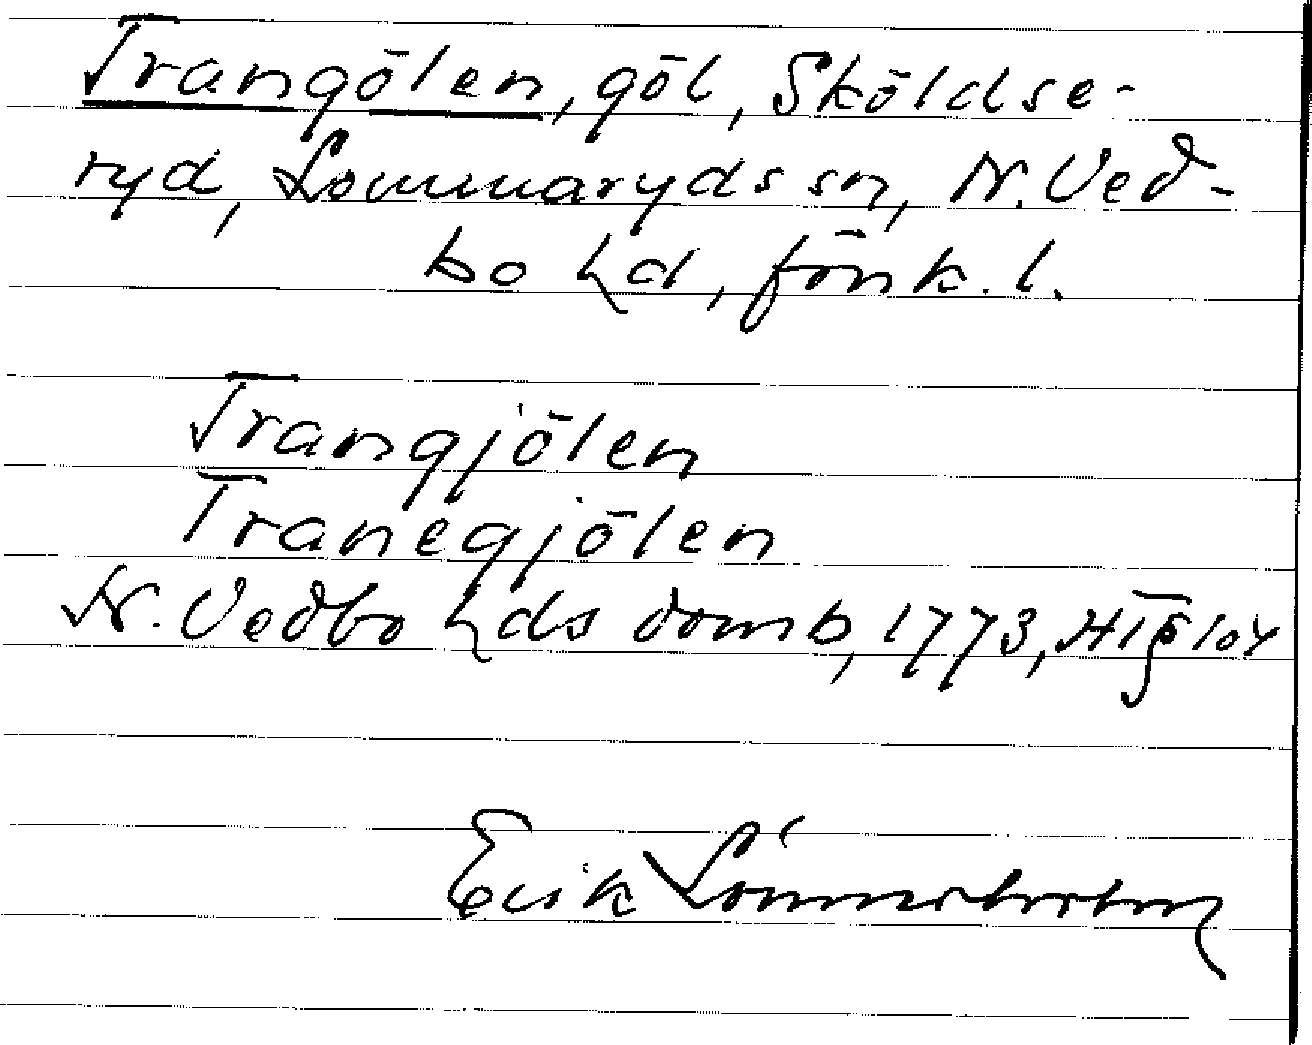 Trangölen, göl, Sköldse-
ryd, Lommaryds sn, N. Ved-
bo hd, Jönk. l.
Trangjölen
Tranegjölen
N. Vedbo hds domb, 1773, HT § 104
Erik Lönnerholm